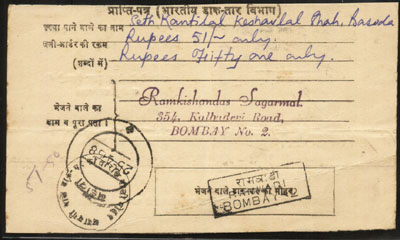 प्राप्ति-पत्र (भारतीय डाक-तार विभाग)
रुपया पाने वाले का नाम Seth Kantilal Keshavlal Shah, Baroda
मनी-आर्डर की रकम Rupees 51/- only.
(शब्दों में) Rupees Fifty one only.
भेजने वाले का
नाम व पूरा पता
Ramkishandas Sagarmal.
354, Kalbadevi Road,
BOMBAY No. 2.
रामवाडी
RAMWADI
BOMBAY-2
भेजने वाले डाकघर की मोहर